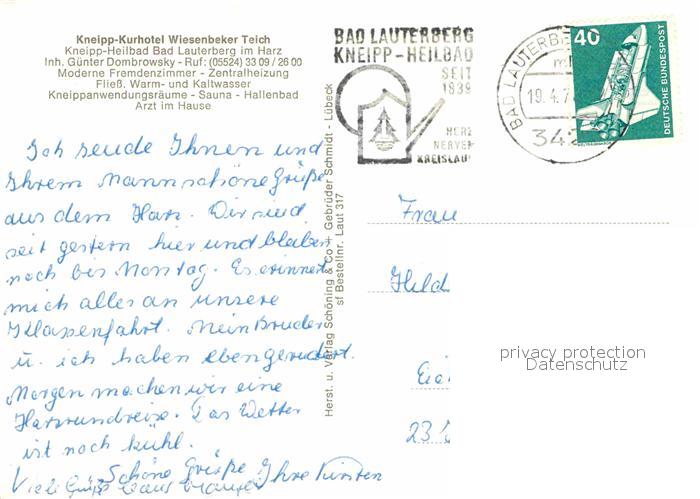 Kneipp-Kurhotel Wiesenbeker Teich
Kneipp-Heilbad Bad Lauterberg im Harz
Inh. Günter Dombrowsky - Ruf: (05524) 33 09 / 26 00
Moderne Fremdenzimmer - Zentralheizung
Fließ. Warm- und Kaltwasser
Kneippanwendungsräume - Sauna - Hallenbad
Arzt im Hause
BAD LAUTERBERG
KNEIPP-HEILBAD
SEIT
1839
HERZ
NERVEN
KREISLAU
BAD LAUTERBE
19.4.7
342
40
DEUTSCHE BUNDESPOST
Ich sende Ihnen und
Ihrem Mann schöne Grüße
aus dem Harz. Wir sind
seit gestern hier und bleiben
noch bis Montag. Es erinnert
mich alles an unsere
Klassenfahrt. Mein Bruder
u. ich haben eben gerudert.
Morgen machen wir eine
Harzrundreise. Das Wetter
ist noch kühl.
Schöne Grüße Ihre Kirsten
Viele Grüße
Herst. u. Verlag Schöning & Co + Gebrüder Schmidt - Lübeck
sf Bestellnr. Laut 317
Frau
Hild
23
privacy protection
Datenschutz